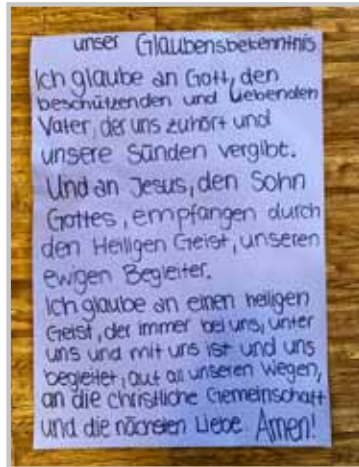 unser Glaubensbekenntnis
Ich glaube an Gott, den
beschützenden und Liebenden
Vater, der uns zuhört und
unsere Sünden vergibt.
Und an Jesus, den Sohn
Gottes, empfangen durch
den Heiligen Geist, unseren
ewigen Begleiter.
Ich glaube an einen heiligen
Geist, der immer bei uns, unter
uns und mit uns ist und uns
begleitet, auf all unseren Wegen,
an die christliche Gemeinschaft
und die nächsten Liebe. Amen!